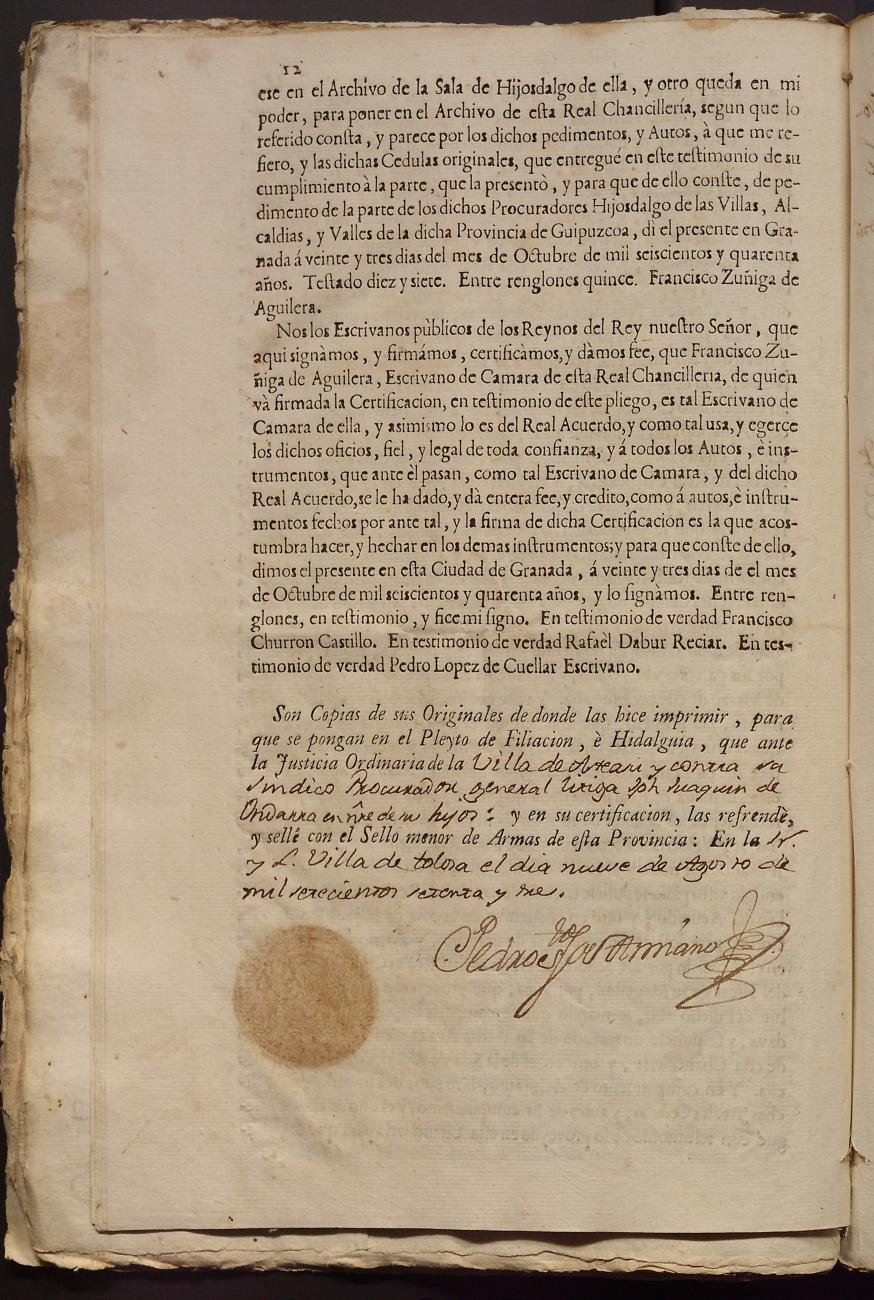 12
ese en el Archivo de la Sala de Hijosdalgo de ella, y otro queda en mi
poder, para poner en el Archivo de esta Real Chancillería, segun que lo
referido consta, y parece por los dichos pedimentos, y Autos, à que me re-
fiero, y las dichas Cedulas originales, que entregué en este testimonio de su
cumplimiento à la parte, que la presentò, y para que de ello conste, de pe-
dimento de la parte de los dichos Procuradores Hijosdalgo de las Villas, Al-
caldias, y Valles de la dicha Provincia de Guipuzcoa, di el presente en Gra-
nada á veinte y tres dias del mes de Octubre de mil seiscientos y quarenta
años. Testado diez y siete. Entre renglones quince. Francisco Zuñiga de
Aguilera.
Nos los Escrivanos pùblicos de los Reynos del Rey nuestro Señor, que
aqui signàmos, y firmámos, certificàmos, y dàmos fee, que Francisco Zu-
ñiga de Aguilera, Escrivano de Camara de esta Real Chancilleria, de quien
và firmada la Certificacion, en testimonio de este pliego, es tal Escrivano de
Camara de ella, y asimismo lo es del Real Acuerdo, y como tal usa, y egerce
los dichos oficios, fiel, y legal de toda confianza, y á todos los Autos, è ins-
trumentos, que ante èl pasan, como tal Escrivano de Camara, y del dicho
Real Acuerdo, se le ha dado, y dà entera fee, y credito, como á autos, è instru-
mentos fechos por ante tal, y la firma de dicha Certificacion es la que acos-
tumbra hacer, y hechar en los demas instrumentos; y para que conste de ello,
dimos el presente en esta Ciudad de Granada, á veinte y tres dias de el mes
de Octubre de mil seiscientos y quarenta años, y lo signàmos. Entre ren-
glones, en testimonio, y fice mi signo. En testimonio de verdad Francisco
Churron Castillo. En testimonio de verdad Rafaèl Dabur Reciar. En tes-
timonio de verdad Pedro Lopez de Cuellar Escrivano.
Son Copias de sus Originales de donde las hice imprimir, para
que se pongan en el Pleyto de Filiacion, è Hidalguia, que ante
la Justicia Ordinaria de la Villa de y contra su
Sindico Procurador general litiga Jph Juaquin de
Ondarra en nre de su hijos: y en su certificacion, las refrendè,
y sellè con el Sello menor de Armas de esta Provincia: En la N.
y L. Villa de tolosa el dia nueve de Agosto de
mil setecientos setenta y tres.
Pedro